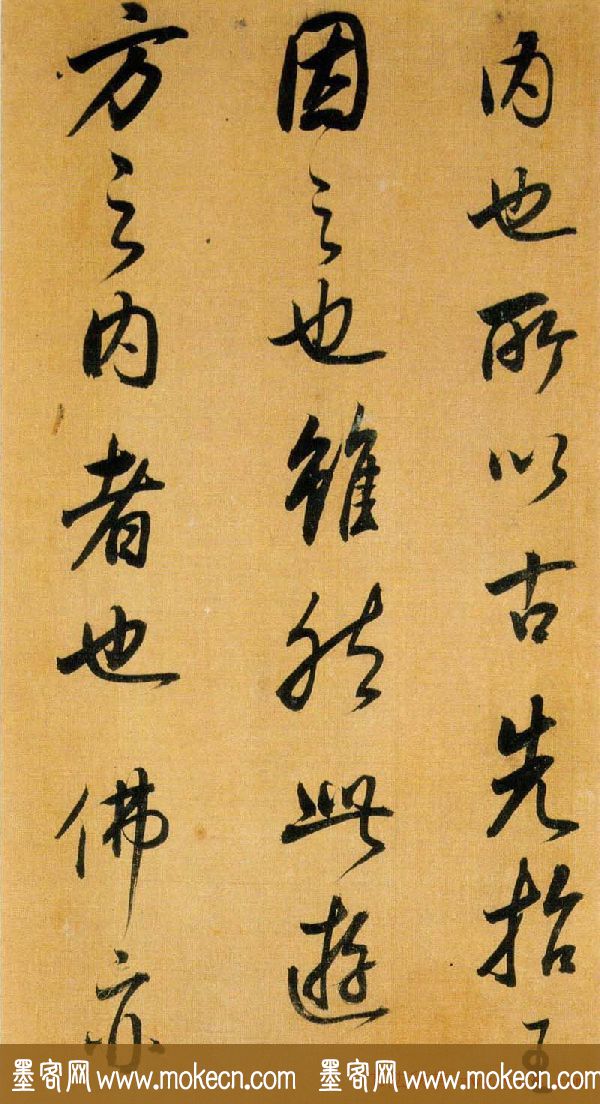 内也所以古先指
因之也雖然此遊
方之内者也佛亦
墨客网 www.mokecn.com 墨客网 www.mokecn.com